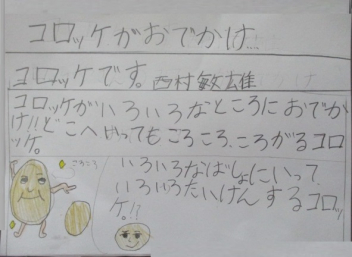 コロッケがおでかけ
コロッケです。西村敏雄
コロッケがいろいろなところにおでか
け!!どこへいってもころころ、ころがるコロ
ッケ。
ころころ
いろいろなばしょにいって、
いろいろたいけんするコロッ
ケ。!?